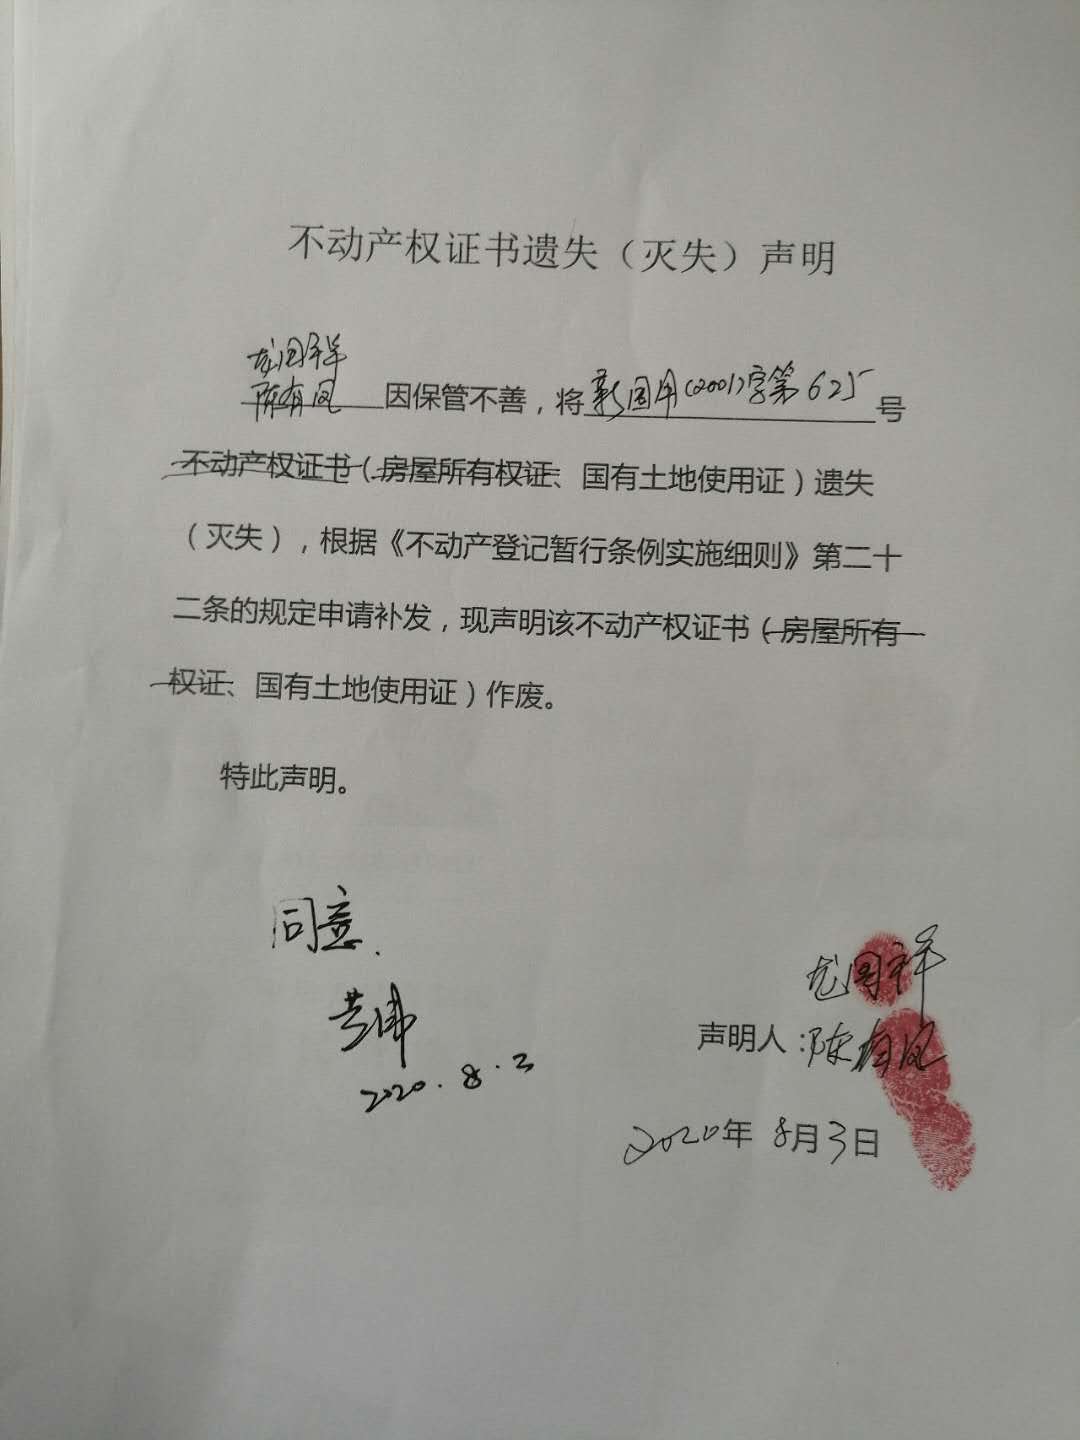 不动产权证书遗失（灭失）声明
龙国祥
陈有凤 因保管不善，将新国用(2001)字第625号
不动产权证书（房屋所有权证、国有土地使用证）遗失
（灭失），根据《不动产登记暂行条例实施细则》第二十
二条的规定申请补发，现声明该不动产权证书（房屋所有
权证、国有土地使用证）作废。
特此声明。
同意.
2020.8.3
龙国祥
声明人：陈有凤
2020年8月3日